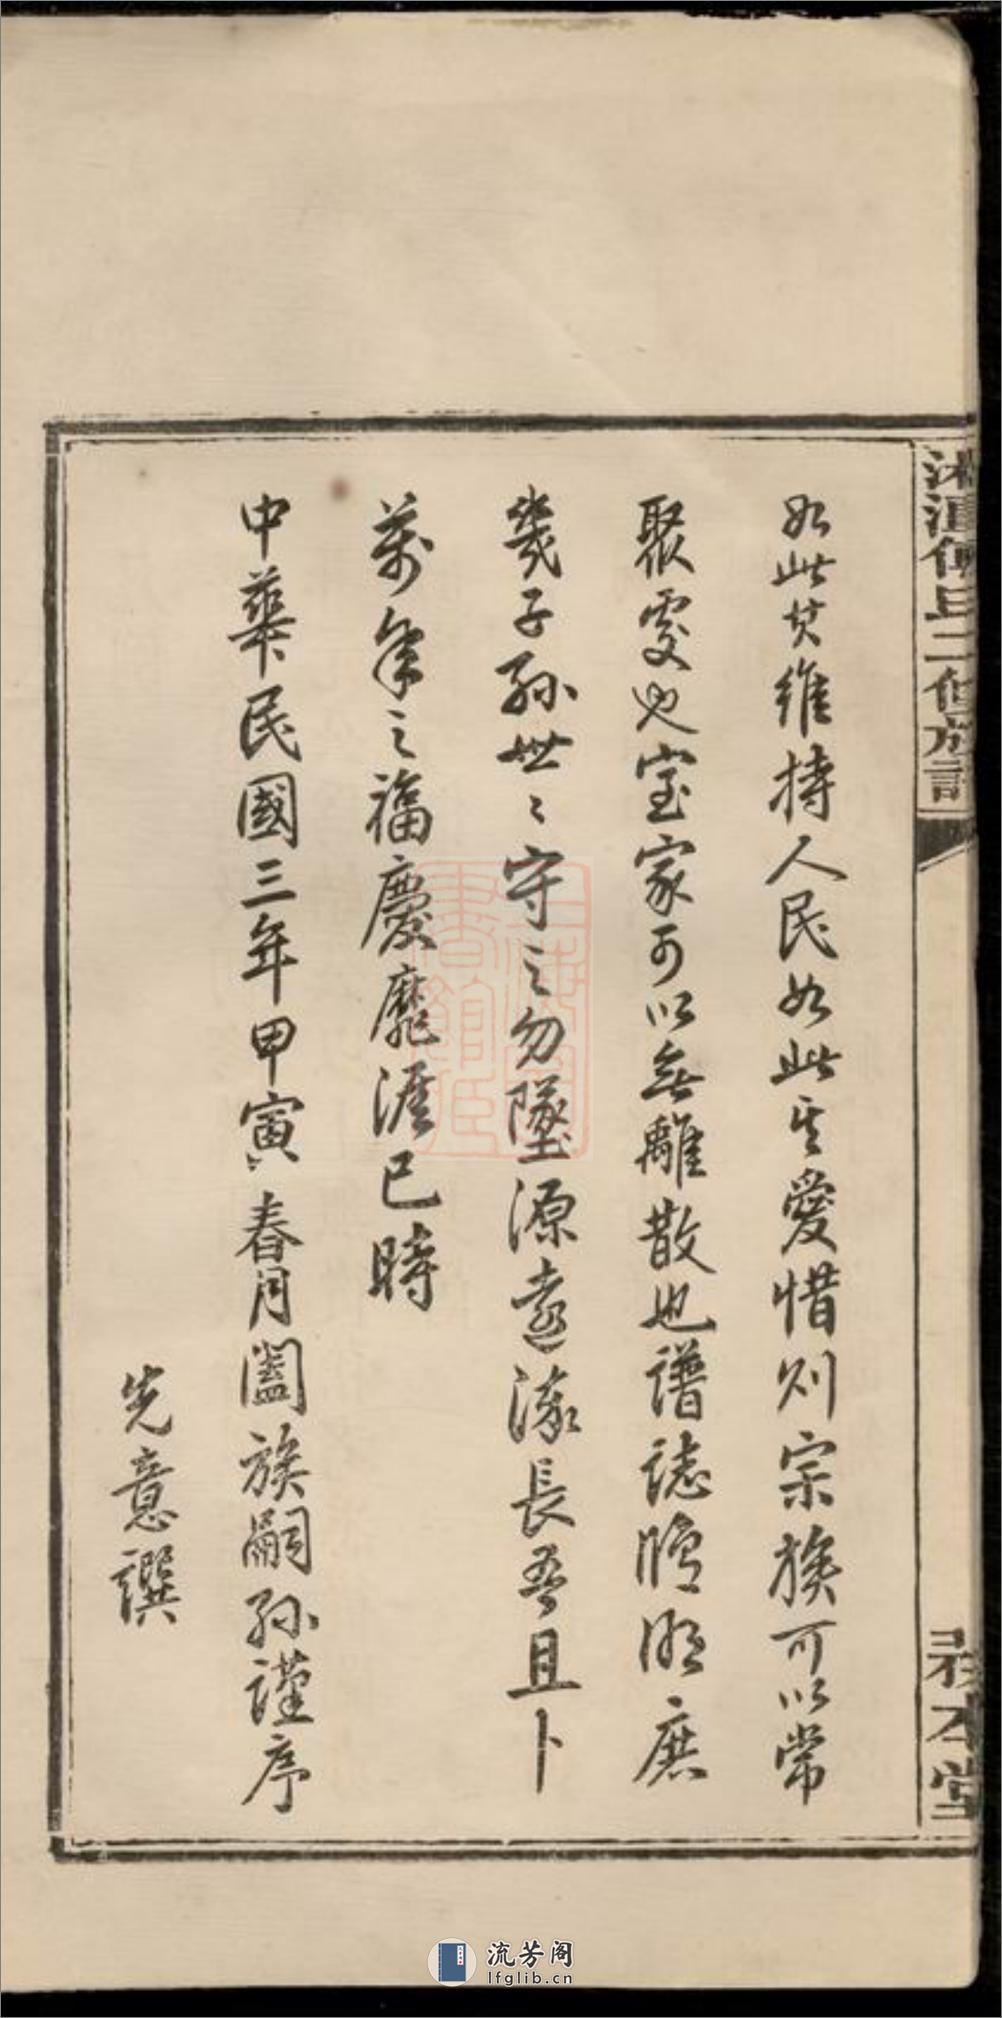 氏二修族譜
本堂
如此其維持人民如此其愛惜則宗族可以常
聚處也室家可以無離散也譜誌脩明庶
幾子孫世〻守之勿墜源遠流長吾且卜
萬年之福慶靡涯已時
中華民國三年甲寅春月闔族嗣孫謹序
先意譔
上海圖
書館藏
流芳阁
lfglib.cn